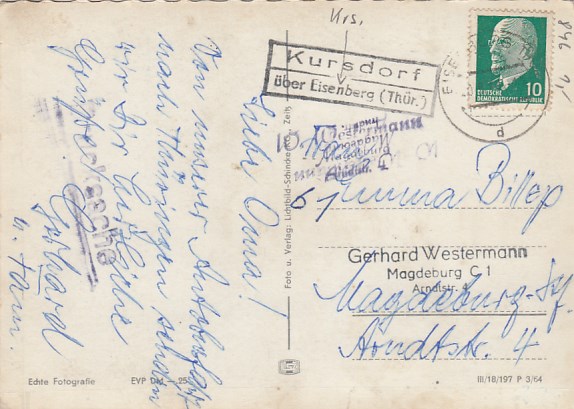 Krs.
Kursdorf
über Eisenberg (Thür.)
DEUTSCHE
DEMOKRATISCHE REPUBLIK
10
d
846
Liebe Oma!
Von unserer Autofahrt
nach Thüringen senden
wir Dir herzliche
Grüße.
Gerhard
u. Fam.
Drucksache
Foto u. Verlag: Lichtbild-Schincke KG., Zeitz
Westermann
Magdeburg
Arndtstr. 4
Emma Billep
Gerhard Westermann
Magdeburg C 1
Arndtstr. 4
Magdeburg
Arndtstr. 4
Echte Fotografie
EVP DM —.25
III/18/197 P 3/64